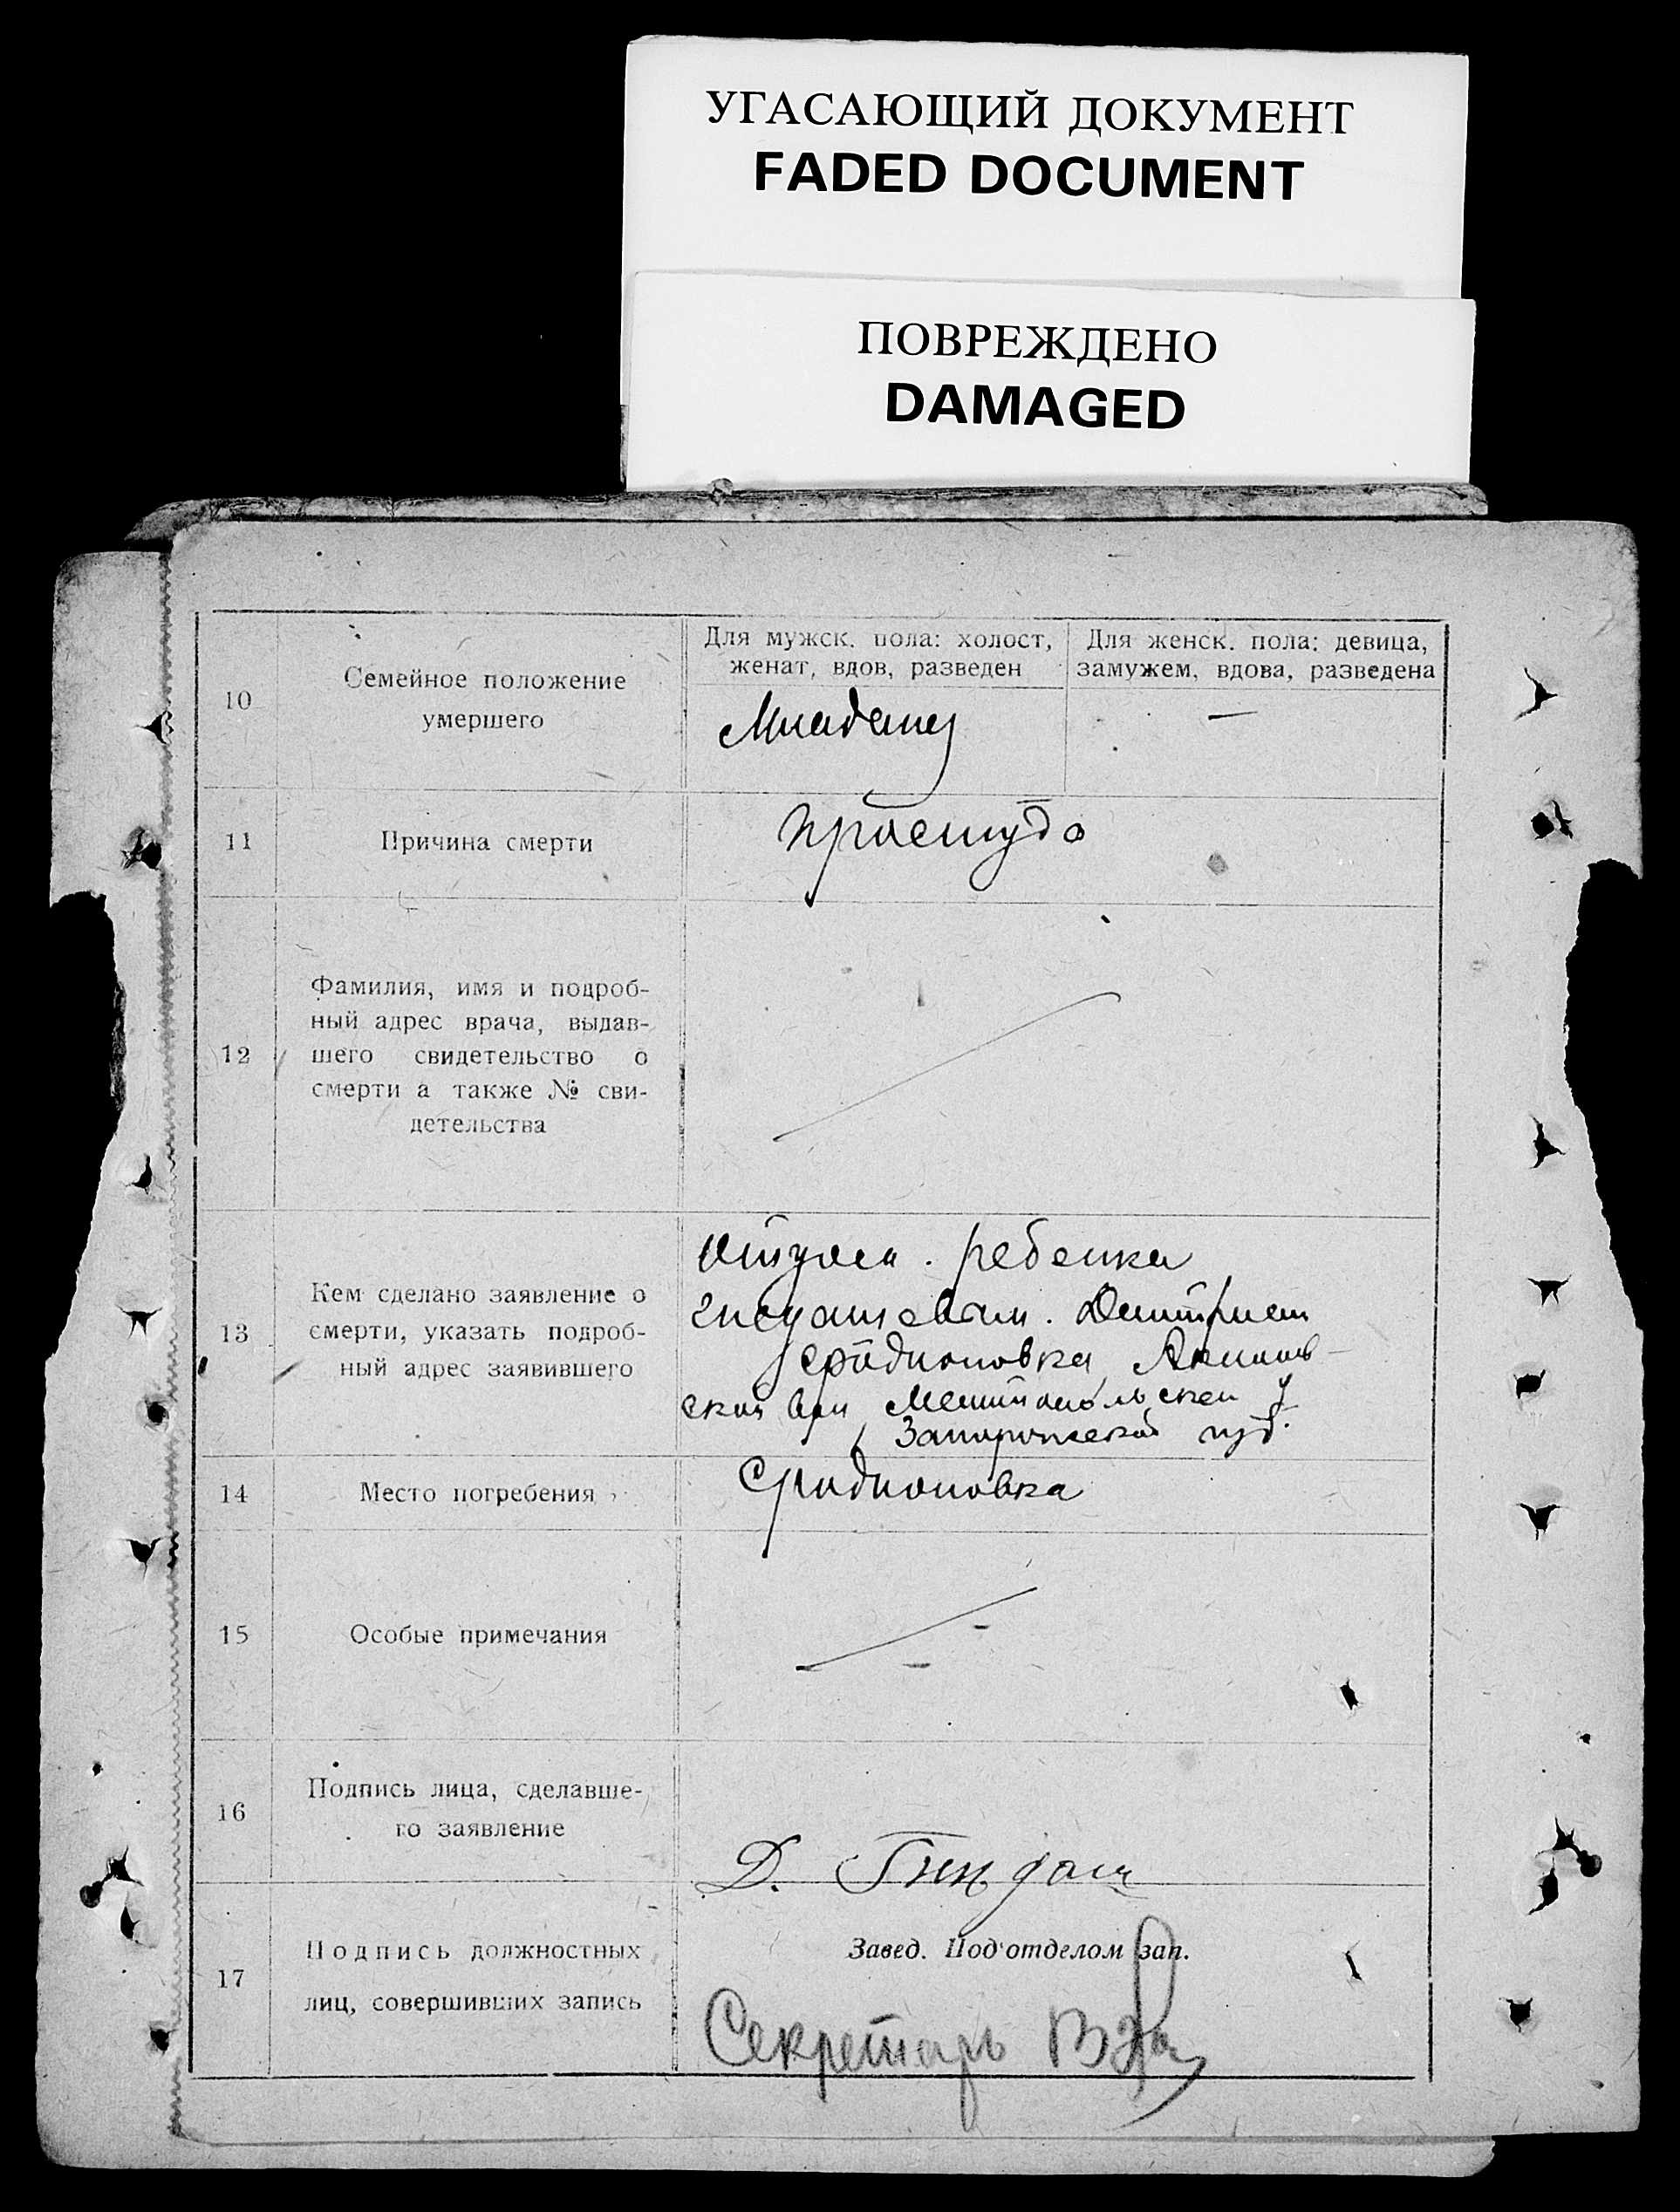 УГАСАЮЩИЙ ДОКУМЕНТ
FADED DOCUMENT
ПОВРЕЖДЕНО
DAMAGED
10
Семейное положение
умершего
Для мужск. пола: холост,
женат, вдов, разведен
Младенец
Для женск. пола: девица,
замужем, вдова, разведена
—
11
Причина смерти
простуда
12
Фамилия, имя и подроб-
ный адрес врача, выдав-
шего свидетельство о
смерти а также № сви-
детельства
13
Кем сделано заявление о
смерти, указать подроб-
ный адрес заявившего
Отцом. ребенка
Дмитрием
Акимов-
ской вол Мелитопольской у
Запорожской губ.
14
Место погребения
Родионовка
15
Особые примечания
16
Подпись лица, сделавше-
го заявление
Д. Гиндаш
17
Подпись должностных
лиц, совершивших запись
Завед. Подотделом зап.
Секретарь